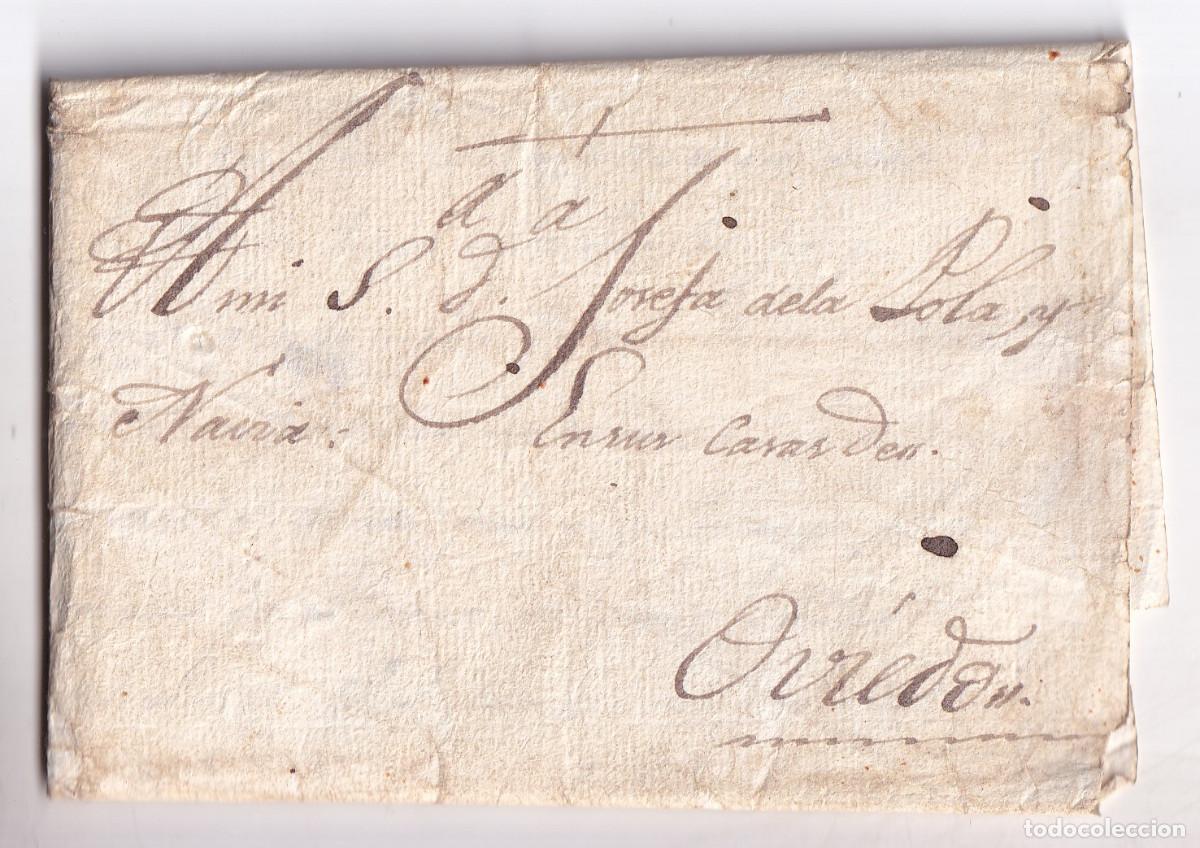 +
A mi S.ᵈ D.ᵃ Josefa dela Pola, y
Navia: En sus Casas Den.
Oviédo.
todocoleccion